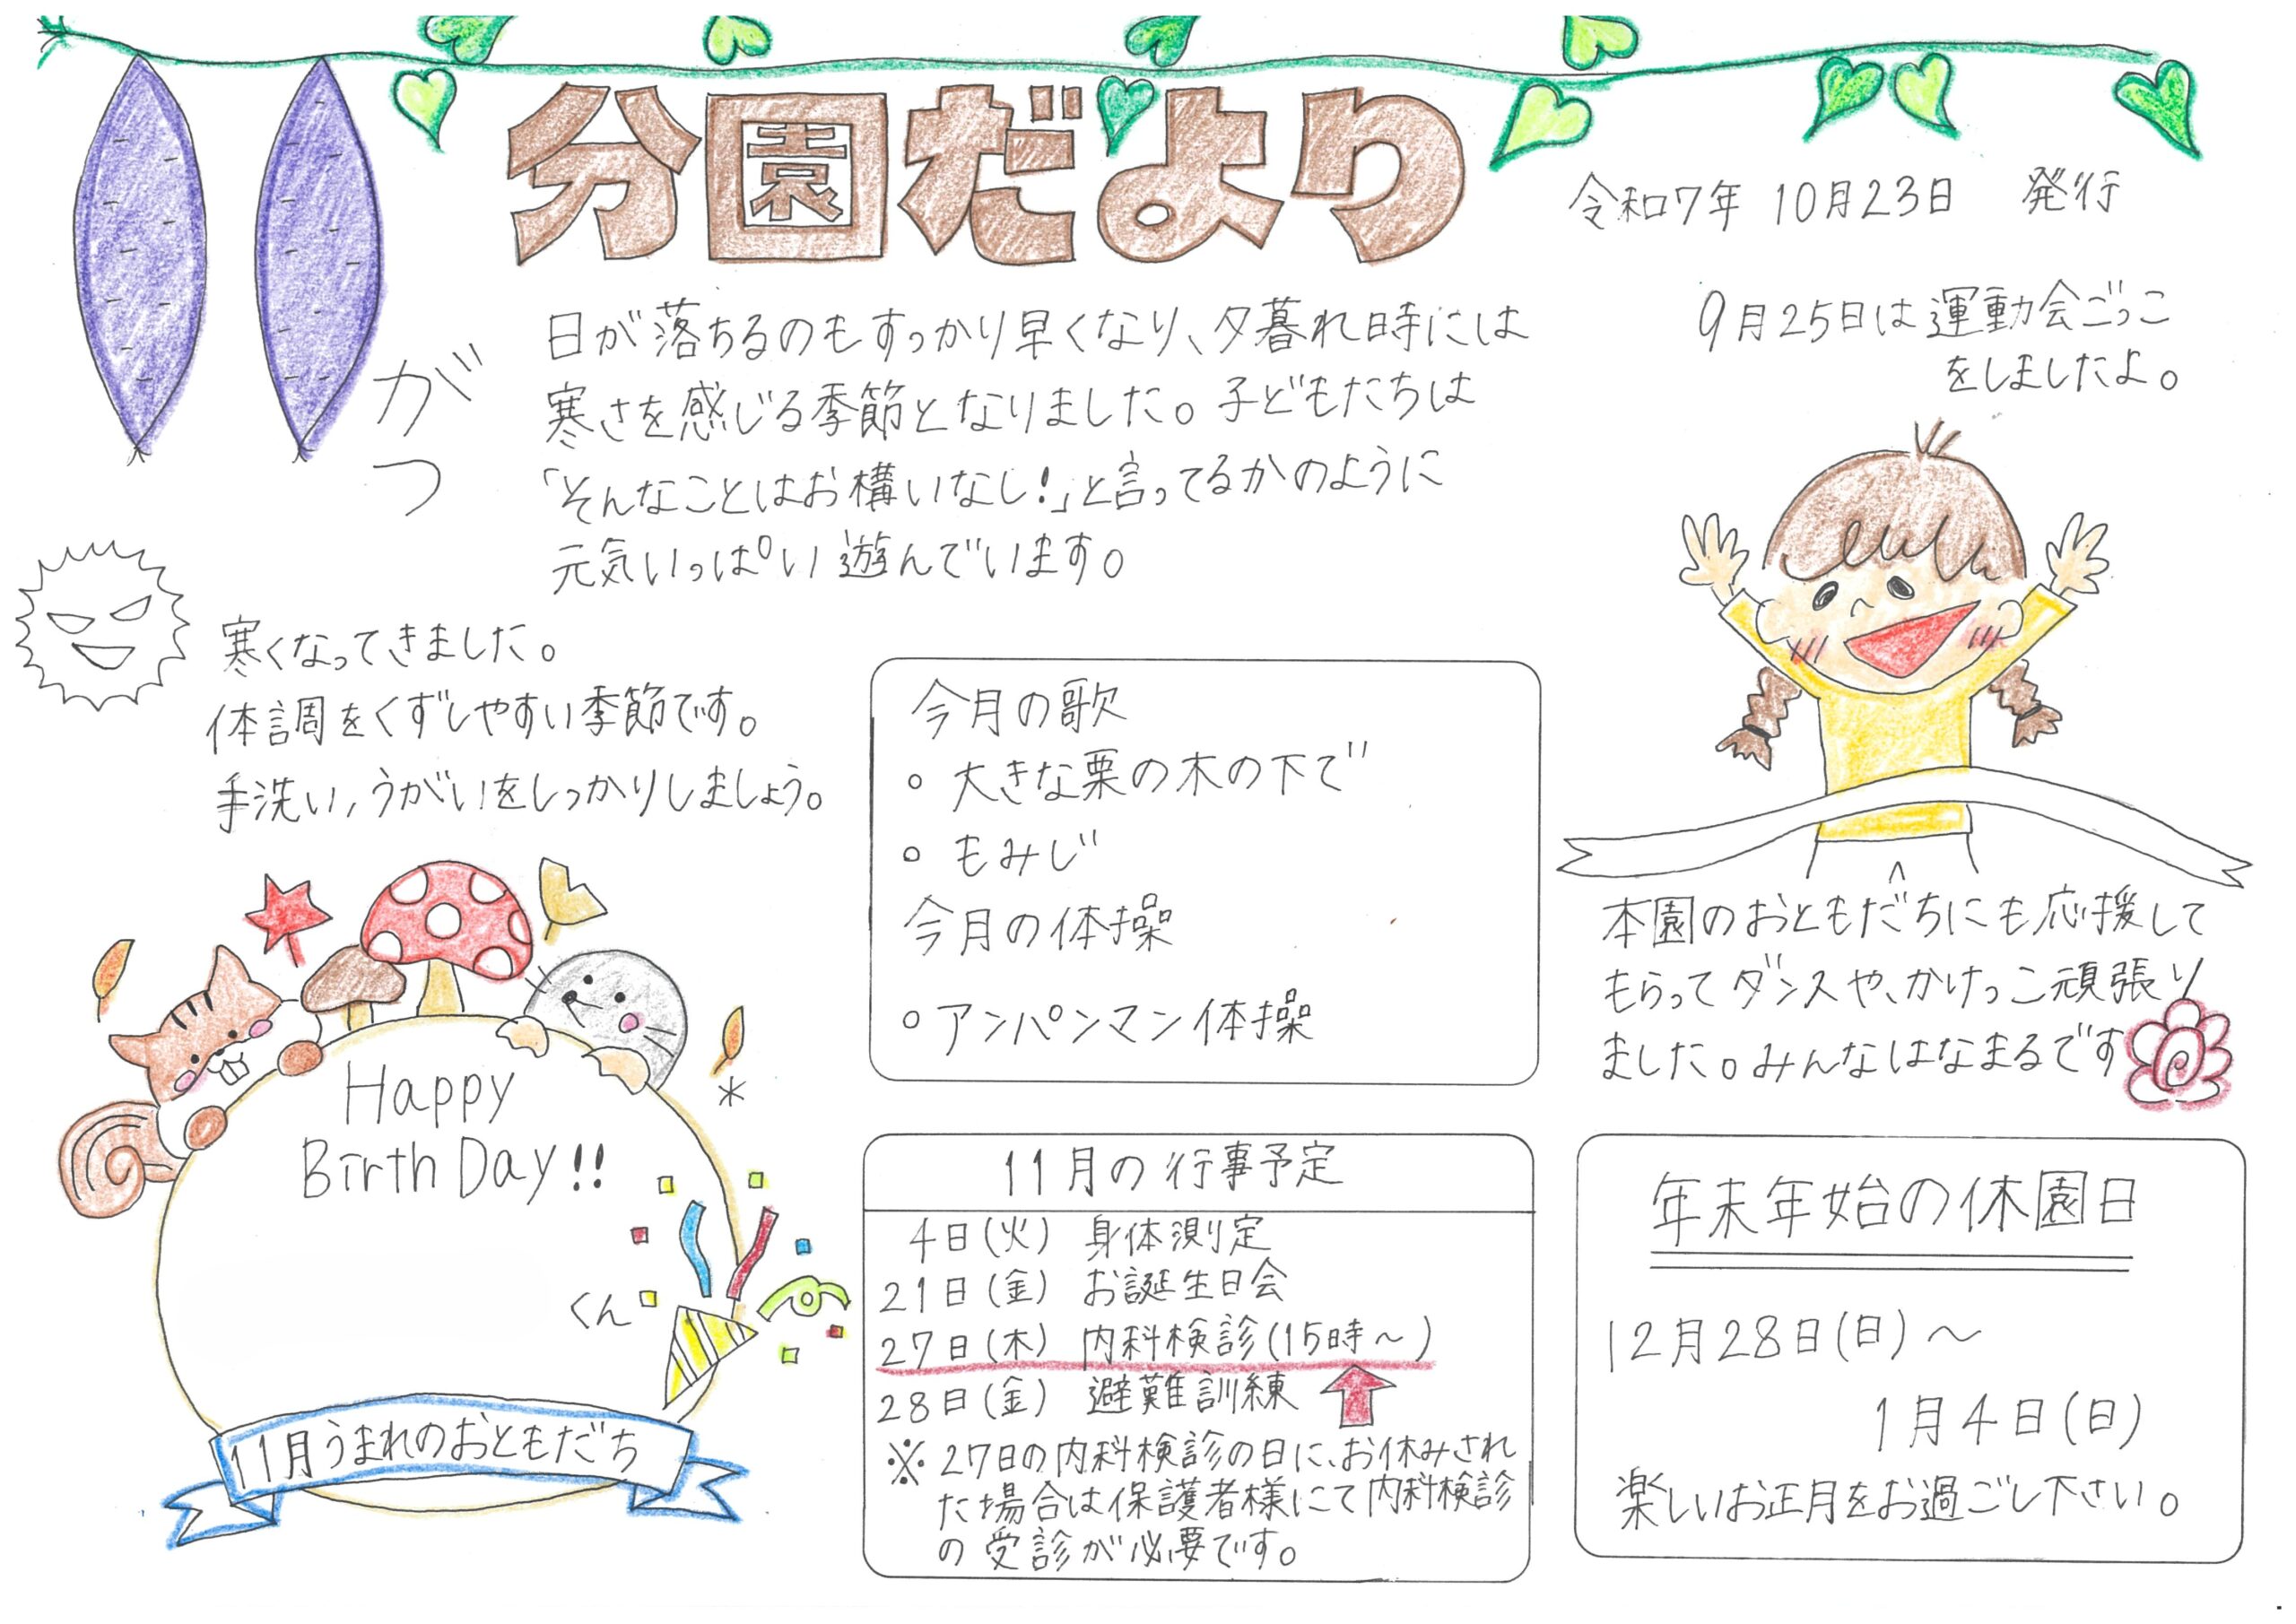 分園だより
令和7年 10月23日 発行
がつ
日が落ちるのもすっかり早くなり、夕暮れ時には
寒さを感じる季節となりました。子どもたちは
「そんなことはお構いなし!」と言ってるかのように
元気いっぱい遊んでいます。
9月25日は運動会ごっこ
をしましたよ。
寒くなってきました。
体調をくずしやすい季節です。
手洗い,うがいをしっかりしましょう。
今月の歌
○ 大きな栗の木の下で
○ もみじ
今月の体操
○ アンパンマン体操
本園のおともだちにも応援して
もらってダンスや、かけっこ頑張り
ました。みんなはなまるです
Happy
Birth Day!!
くん
11月うまれのおともだち
11月の行事予定
4日(火) 身体測定
21日(金) お誕生日会
27日(木) 内科検診(15時〜)
28日(金) 避難訓練
※27日の内科検診の日に、お休みされ
た場合は保護者様にて内科検診
の受診が必要です。
年末年始の休園日
12月28日(日)〜
1月4日(日)
楽しいお正月をお過ごし下さい。